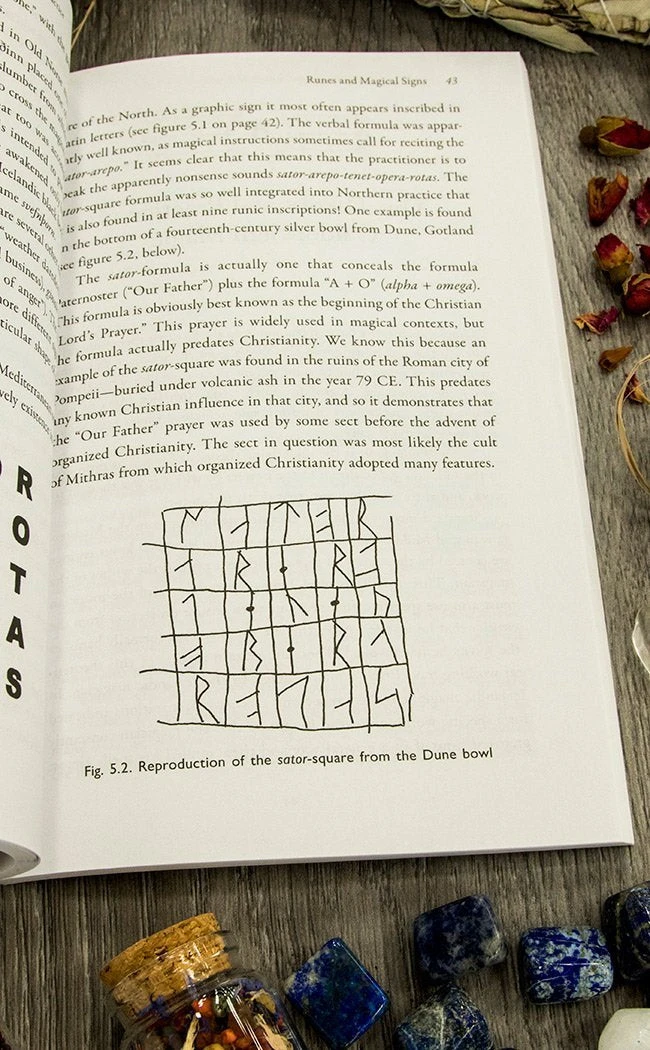 Runes and Magical Signs 43
of the North. As a graphic sign it most often appears inscribed in
letters (see figure 5.1 on page 42). The verbal formula was appar-
well known, as magical instructions sometimes call for reciting the
ator-arepo." It seems clear that this means that the practitioner is to
eak the apparently nonsense sounds sator-arepo-tenet-opera-rotas. The
ator-square formula was so well integrated into Northern practice that
is also found in at least nine runic inscriptions! One example is found
n the bottom of a fourteenth-century silver bowl from Dune, Gotland
see figure 5.2, below).
The sator-formula is actually one that conceals the formula
Paternoster ("Our Father") plus the formula "A + O" (alpha + omega).
This formula is obviously best known as the beginning of the Christian
Lord's Prayer." This prayer is widely used in magical contexts, but
he formula actually predates Christianity. We know this because an
example of the sator-square was found in the ruins of the Roman city of
Pompeii—buried under volcanic ash in the year 79 CE. This predates
any known Christian influence in that city, and so it demonstrates that
the "Our Father" prayer was used by some sect before the advent of
organized Christianity. The sect in question was most likely the cult
of Mithras from which organized Christianity adopted many features.
Fig. 5.2. Reproduction of the sator-square from the Dune bowl
R
O
T
A
S